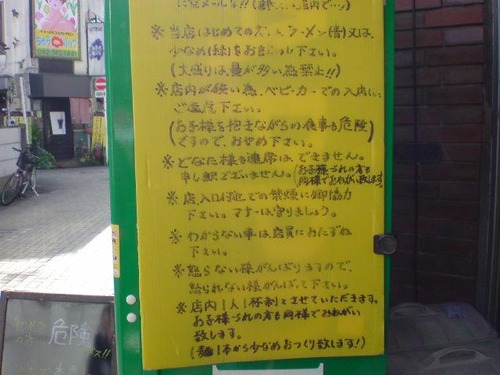 ※当店はじめての方は、ラーメン(青)又は、
少なめ(緑)をお自い下さい。
(大盛りは量が多い為禁止!!)
※店内が狭い為、ベビーカーでの入店は
ご遠慮下さい。
(お子様を抱きながらの食事も危険
ですので、おやめ下さい。)
※どなた様も連席は、できません。
申し訳ございません。(お子様づれの方も
同様でおねがい致します。)
※店、入口付近での禁煙に御協力
下さい。マナーは守りましょう。
※わからない事は、店員におたずね
下さい。
※怒らない様がんばりますので、
怒られない様がんばって下さい。
※店内1人1杯制とさせていただきます。
お子様づれの方も同様でおねがい
致します。
(麺1本から少なめおつくり致します!)
危険